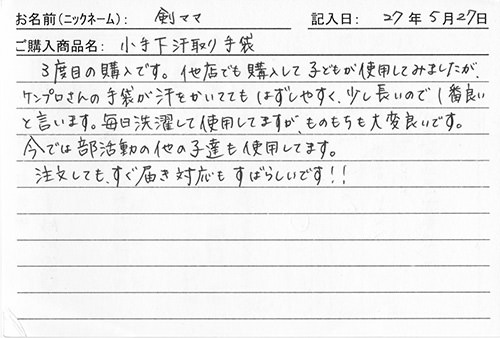 お名前(ニックネーム): 剣ママ 記入日: 27年 5月27日
ご購入商品名: 小手下汗取り手袋
3度目の購入です。他店でも購入して子どもが使用してみましたが、
ケンプロさんの手袋が汗をかいててもはずしやすく、少し長いので1番良い
と言います。毎日洗濯して使用してますが、ものもちも大変良いです。
今では部活動の他の子達も使用してます。
注文しても、すぐ届き対応もすばらしいです!!